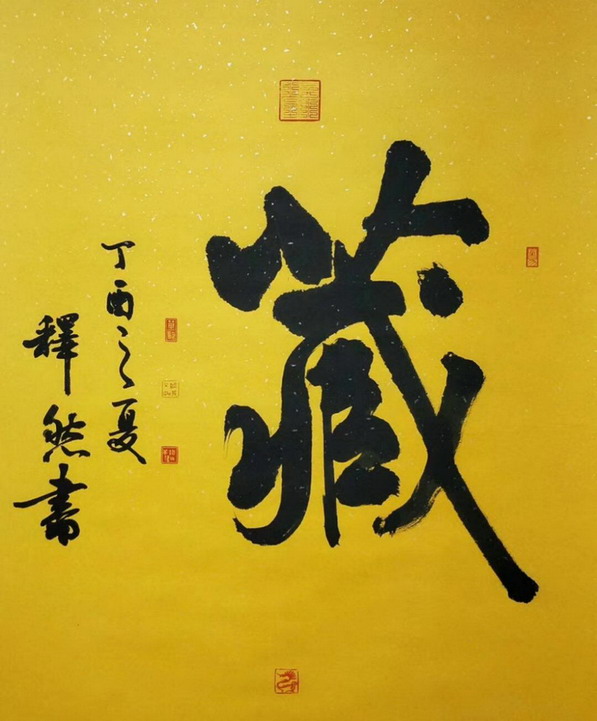 藏
丁酉之夏
釋然書